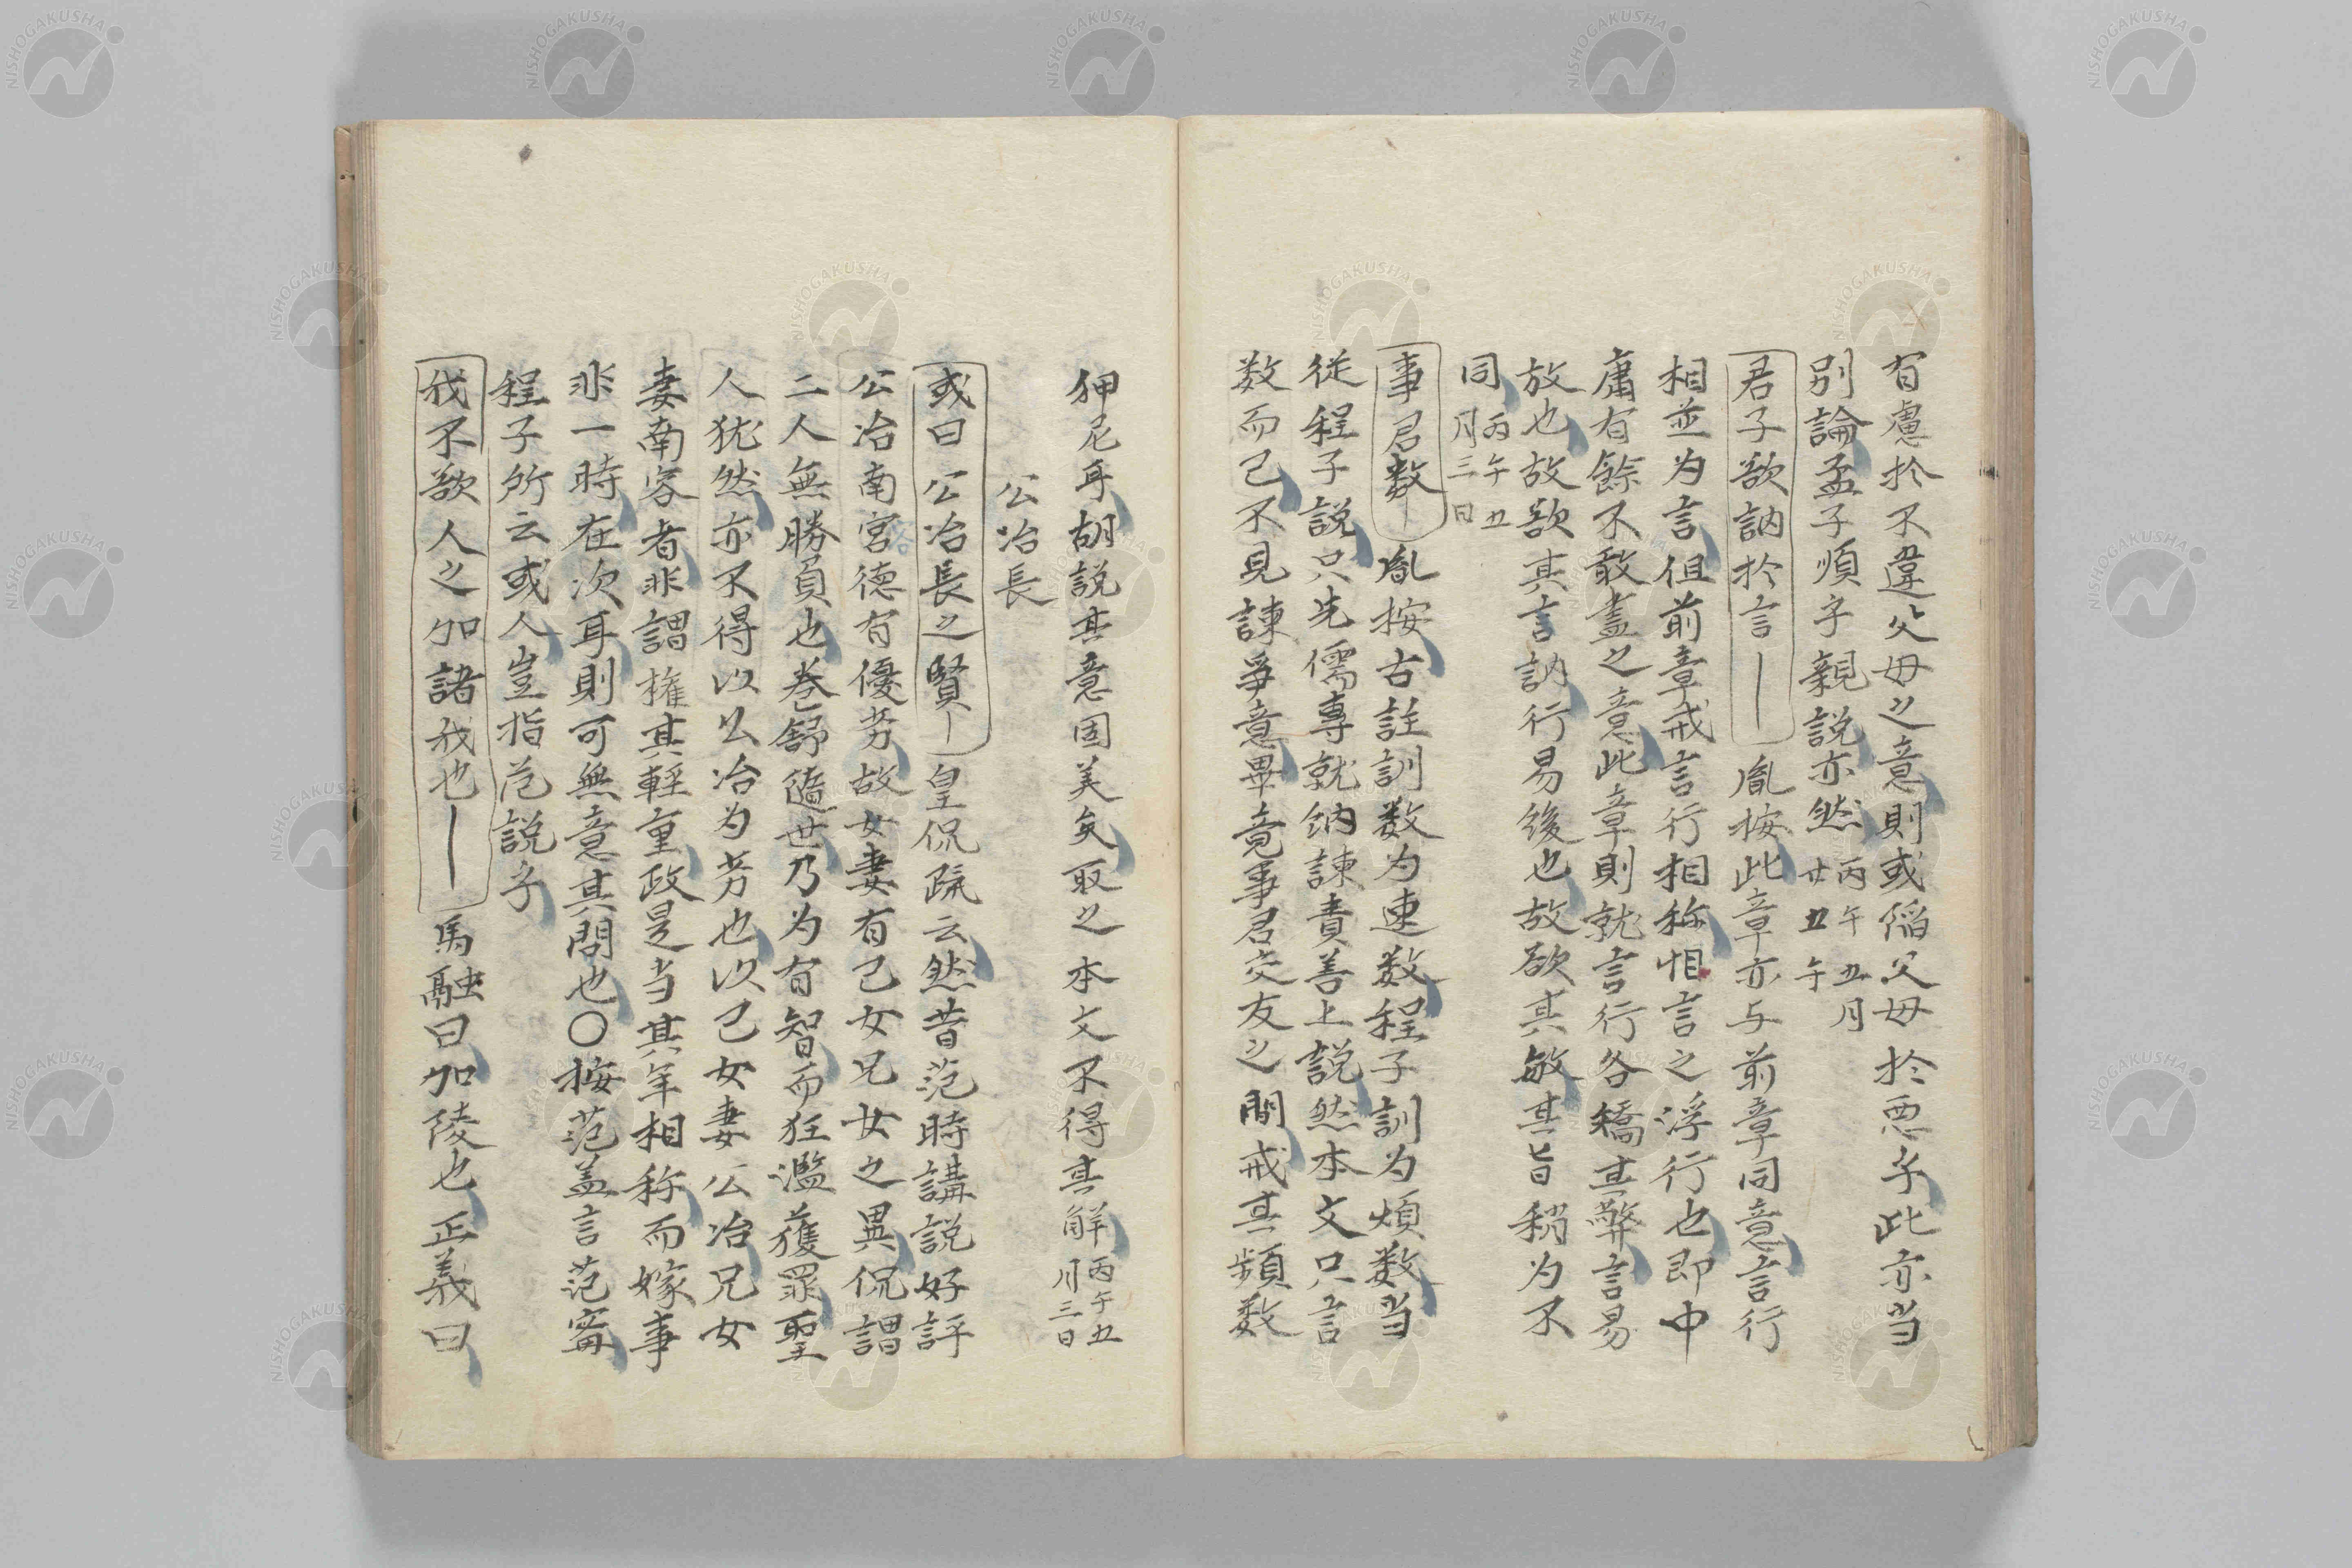 有慮於不違父母之意則或㑫父母於悪乎此亦当
別論孟子順乎親説亦然丙午五月廿五午
君子欲訥於言｜胤按此章亦与前章同意言行
相並为言但前章戒言行相称怛言之浮行也即中
庸有餘不敢盡之意此章則就言行各矯其弊言易
放也故欲其言訥行易後也故欲其敏其旨稍为不
同丙午五月三日
事君数｜胤按古註訓数为速数程子訓为煩数当
従程子説只先儒專就納諫責善上説然本文只言
数而已不見諫爭意畢竟事君交友之間戒其頻数
狎尼耳胡説其意固美矣取之本文不得其解丙午五月三日
公冶長
或曰公冶長之賢｜皇侃疏云然昔范時講説好評
公冶南宮德有優劣故女妻有己女兄女之異侃謂
容
二人無勝負也巻舒随世乃为有智而狂濫獲罪聖
人犹然亦不得以公冶为劣也以己女妻公冶兄女
妻南容者非謂権其軽重政是当其年相称而嫁事
非一時在次耳則可無意其間也〇按范盖言范甯
程子所云或人豈指范説乎
我不欲人之加諸我也｜馬融曰加陵也正義曰
NISHOGAKUSHA